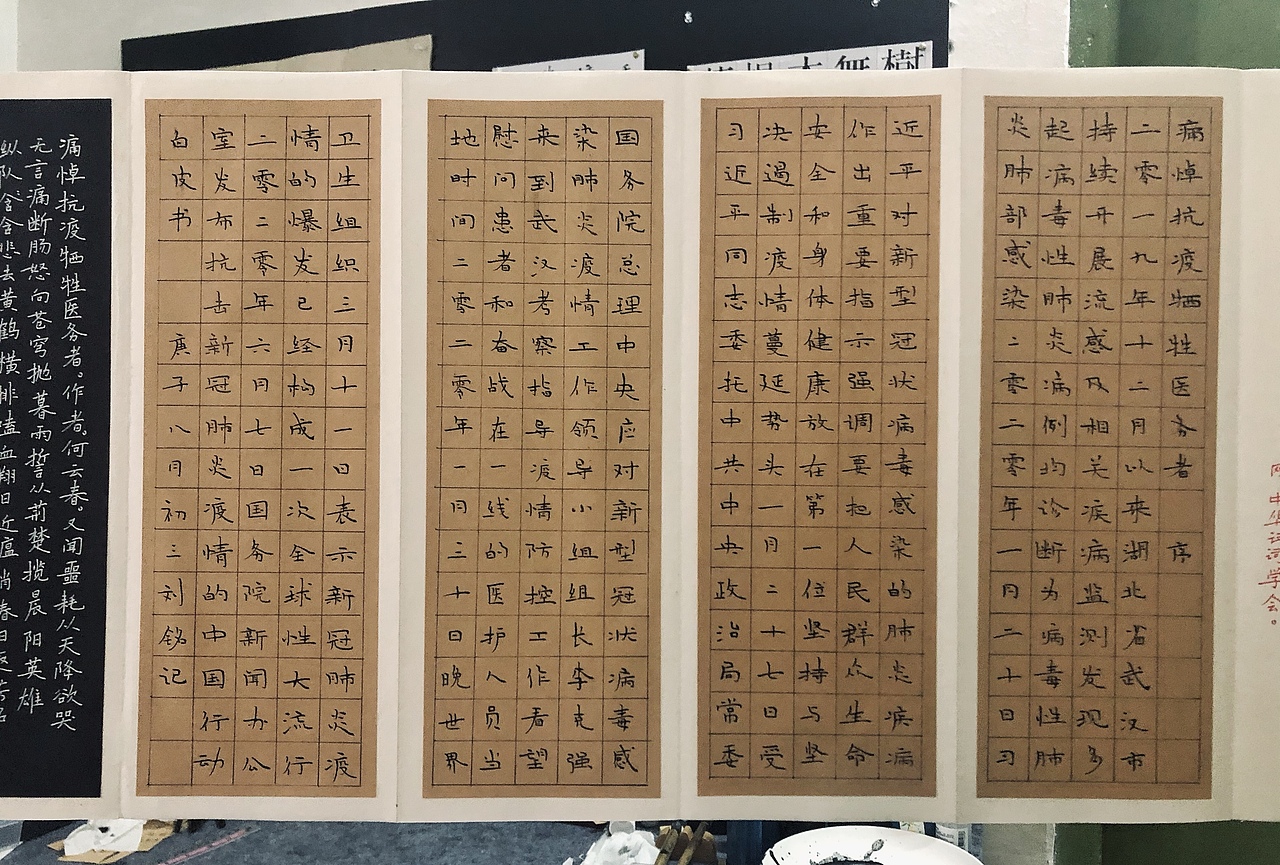 中华诗词学会。
痛悼抗疫牺牲医务者 序
二零一九年十二月以来湖北省武汉市
持续开展流感及相关疾病监测发现多
起病毒性肺炎病例均诊断为病毒性肺
炎肺部感染二零二零年一月二十日习
近平对新型冠状病毒感染的肺炎疾病
作出重要指示强调要把人民群众生命
安全和身体健康放在第一位坚持与坚
决遏制疫情蔓延势头一月二十七日受
习近平同志委托中共中央政治局常委
国务院总理中央应对新型冠状病毒感
染肺炎疫情工作领导小组组长李克强
来到武汉考察指导疫情防控工作看望
慰问患者和奋战在一线的医护人员当
地时间二零二零年一月三十日晚世界
卫生组织三月十一日表示新冠肺炎疫
情的爆发已经构成一次全球性大流行
二零二零年六月七日国务院新闻办公
室发布抗击新冠肺炎疫情的中国行动
白皮书 庚子八月初三刘铭记
痛悼抗疫牺牲医务者。作者。何云春。又闻噩耗从天降欲哭
无言痛断肠怒向苍穹抛暮雨誓从荆楚揽晨阳英雄
纵队含悲去黄鹤横排血翔日近
無樹